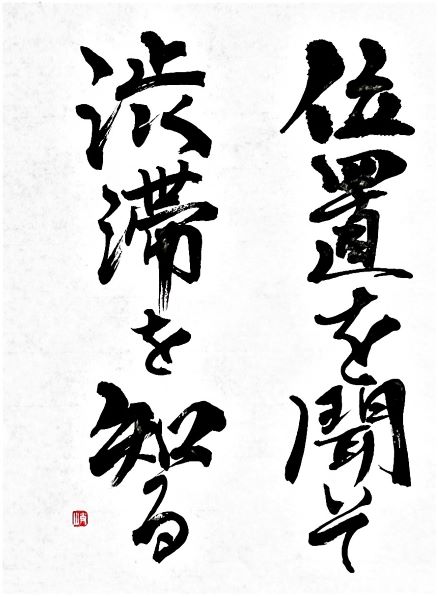 位置を聞いて
渋滞を知る